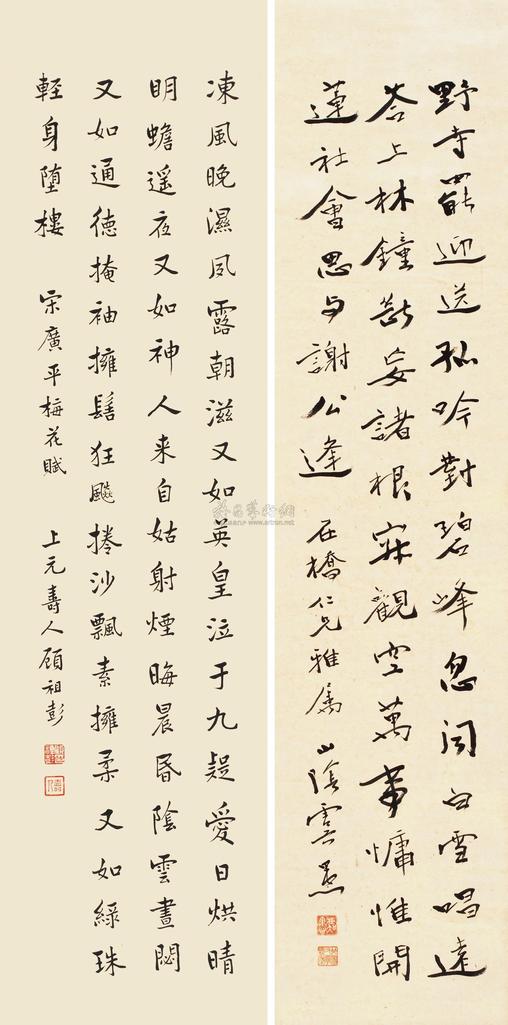 野寺罷迎送孤吟對碧峰忽聞白雪唱遠
答上林鐘斷妄諸根寂觀空萬事慵惟開
蓮社會思与謝公逢 石橋仁兄雅屬 山陰
凍風晚濕夙露朝滋又如英皇泣于九疑愛日烘晴
明蟾遥夜又如神人来自姑射煙晦晨昏陰雲晝閟
又如通德掩袖擁髻狂飈捲沙飄素擁柔又如綠珠
輕身墮樓 宋廣平梅花賦 上元壽人顧祖彭